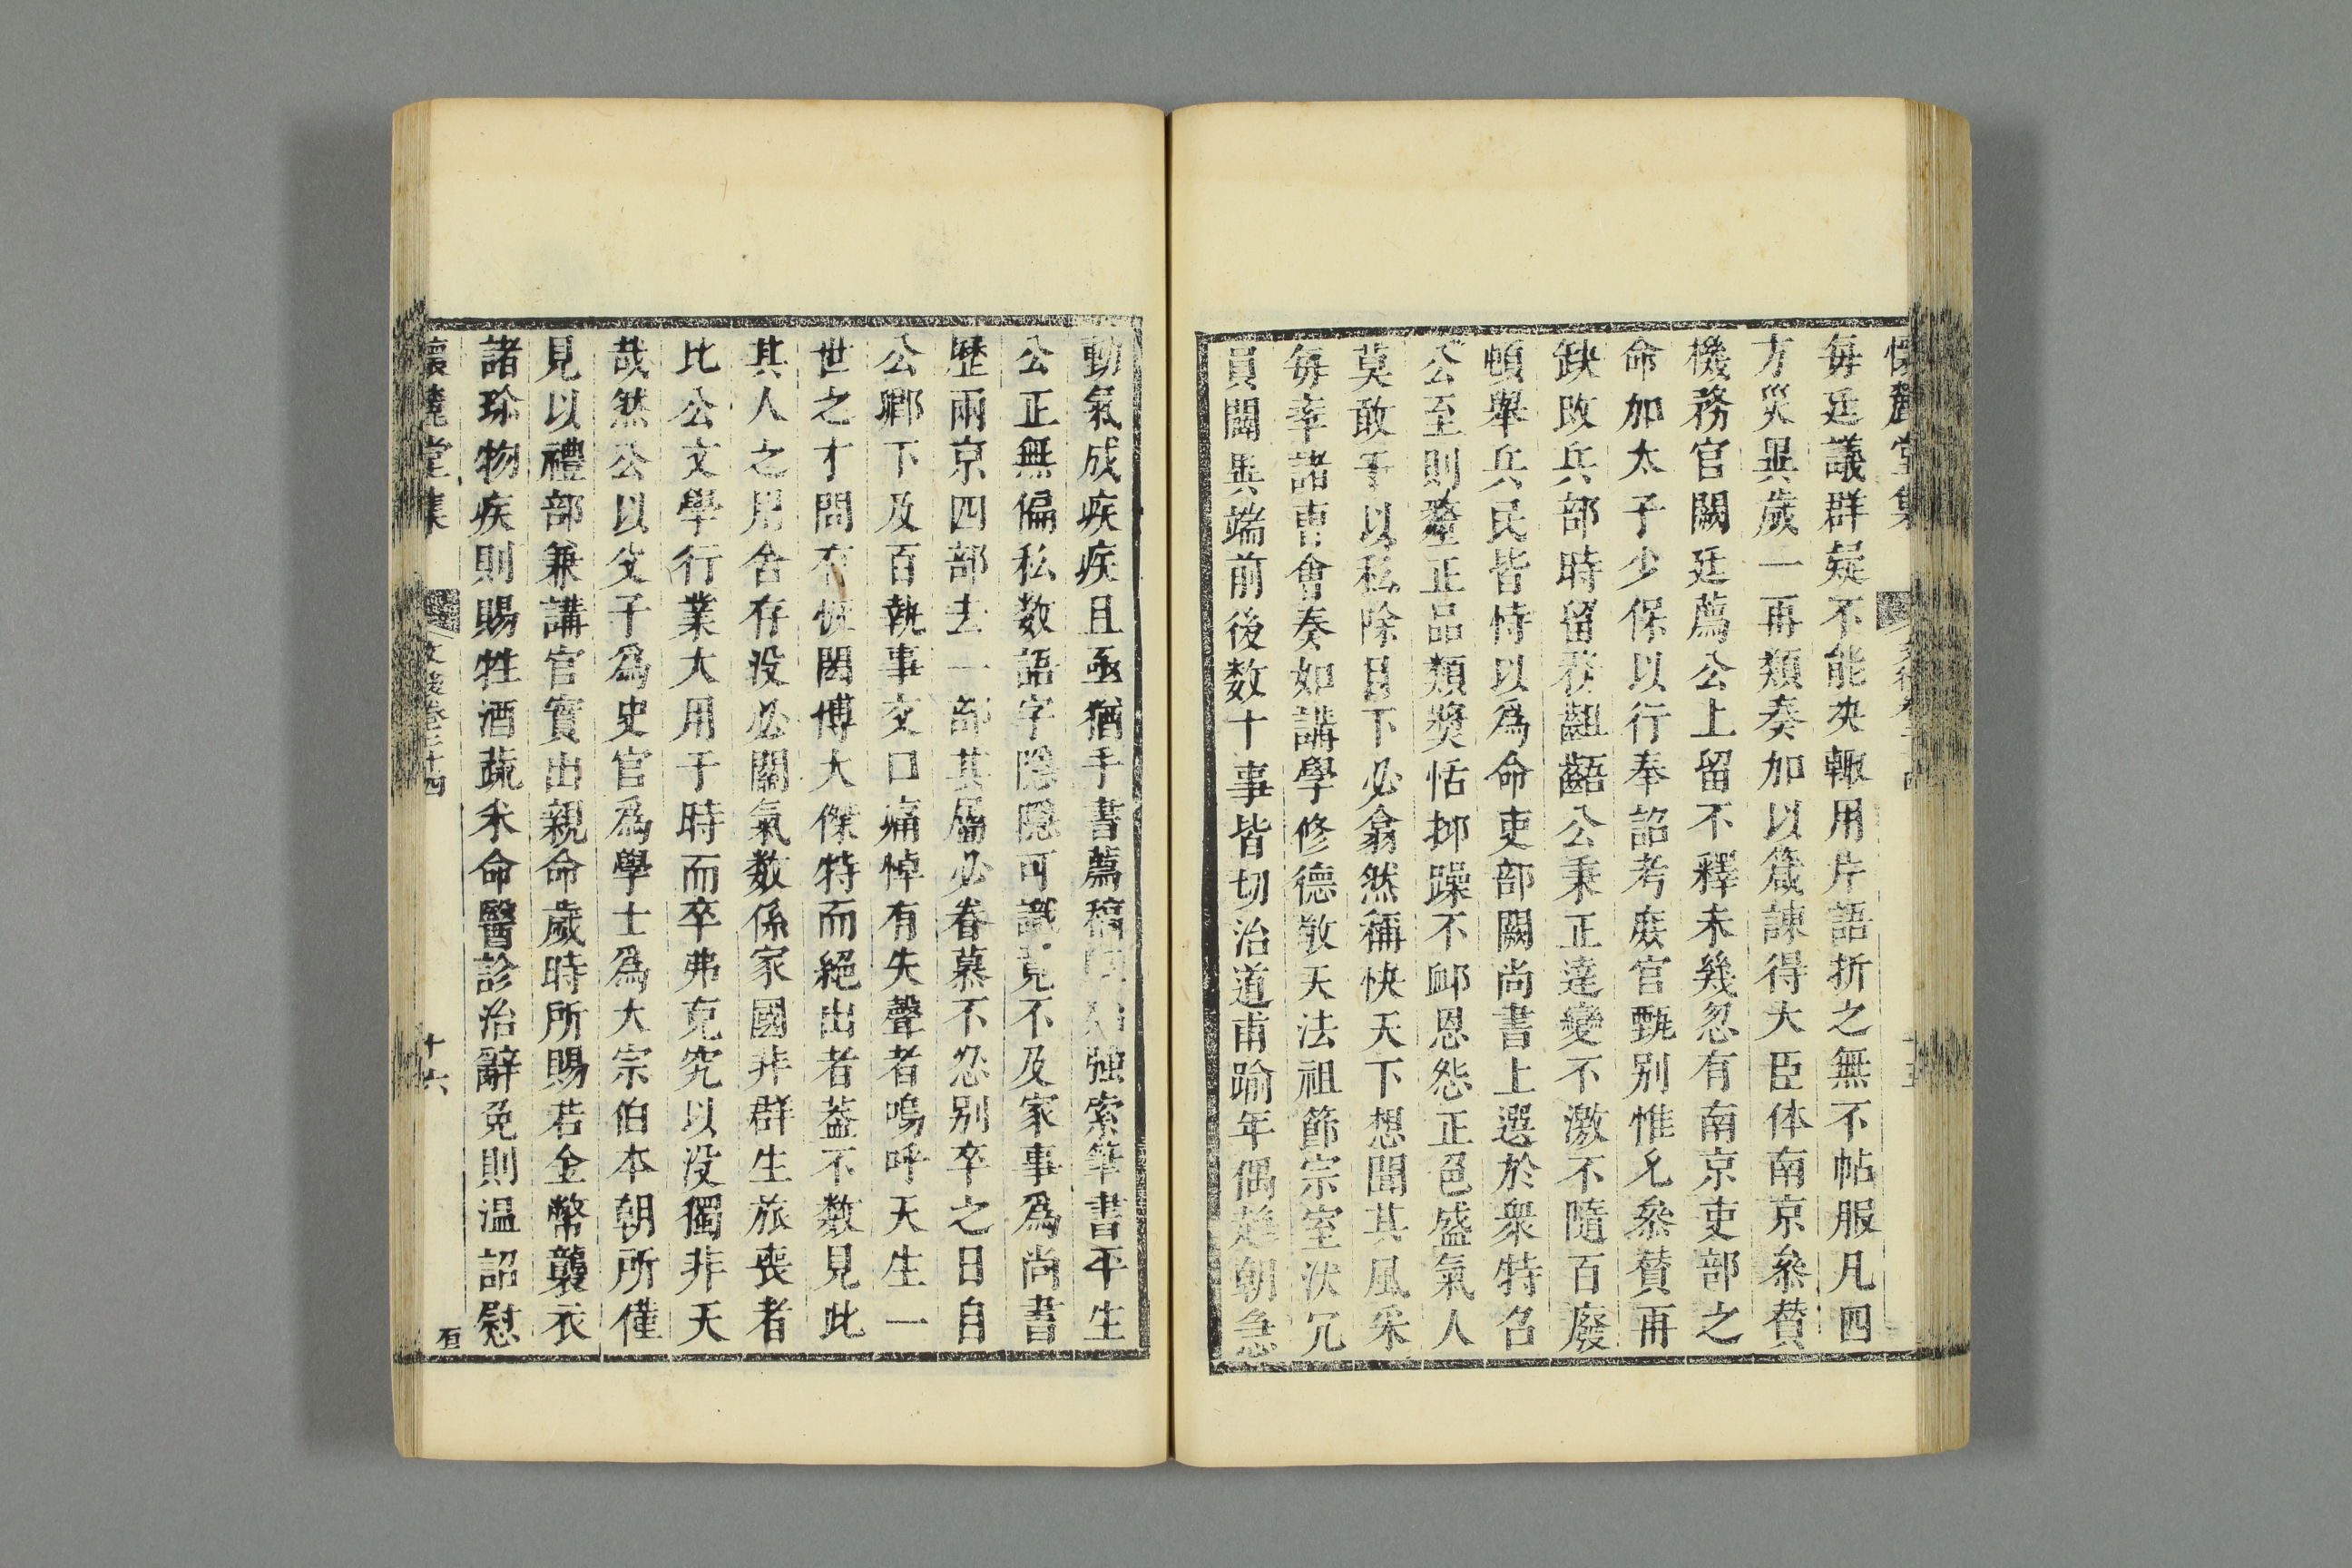 懷麓堂集
每廷議群疑不能决輙用片語折之無不帖服凡四
方災異歲一再類奏加以箴諫得大臣体南京叅賛
機務官闕廷薦公上留不釋未幾忽有南京吏部之
命加太子少保以行奉詔考庶官甄别惟允叅賛再
缺改兵部時留務齟齬公秉正達變不激不隨百廢
頓舉兵民皆恃以爲命吏部闕尚書上選於衆特召
公至則釐正品類奬恬抑躁不䘏恩怨正色盛氣人
莫敢干以私除目下必翕然稱快天下想聞其風采
每幸諸曹會奏如講學修德敬天法祖節宗室汰冗
員闢異端前後数十事皆切治道甫踰年偶趍朝急
動氣成疾疾且亟猶手書薦稿強索筆書平生
公正無偏私数語字隱隱可識竟不及家事爲尚書
歷兩京四部去一部其屬必眷慕不忍别卒之日自
公卿下及百執事交口痛悼有失聲者嗚呼天生一
世之才間有恢閎博大傑特而絕出者葢不数見此
其人之用舍存没必關氣数係家國非群生旅喪者
比公文學行業大用于時而卒弗克究以没獨非天
哉然公以父子爲史官爲學士爲大宗伯本朝所僅
見以禮部兼講官實出親命歲時所賜若金幣襲衣
諸珍物疾則賜牲酒蔬米命醫診治辭免則温詔慰
懷麓堂集 文後卷二十四 十六